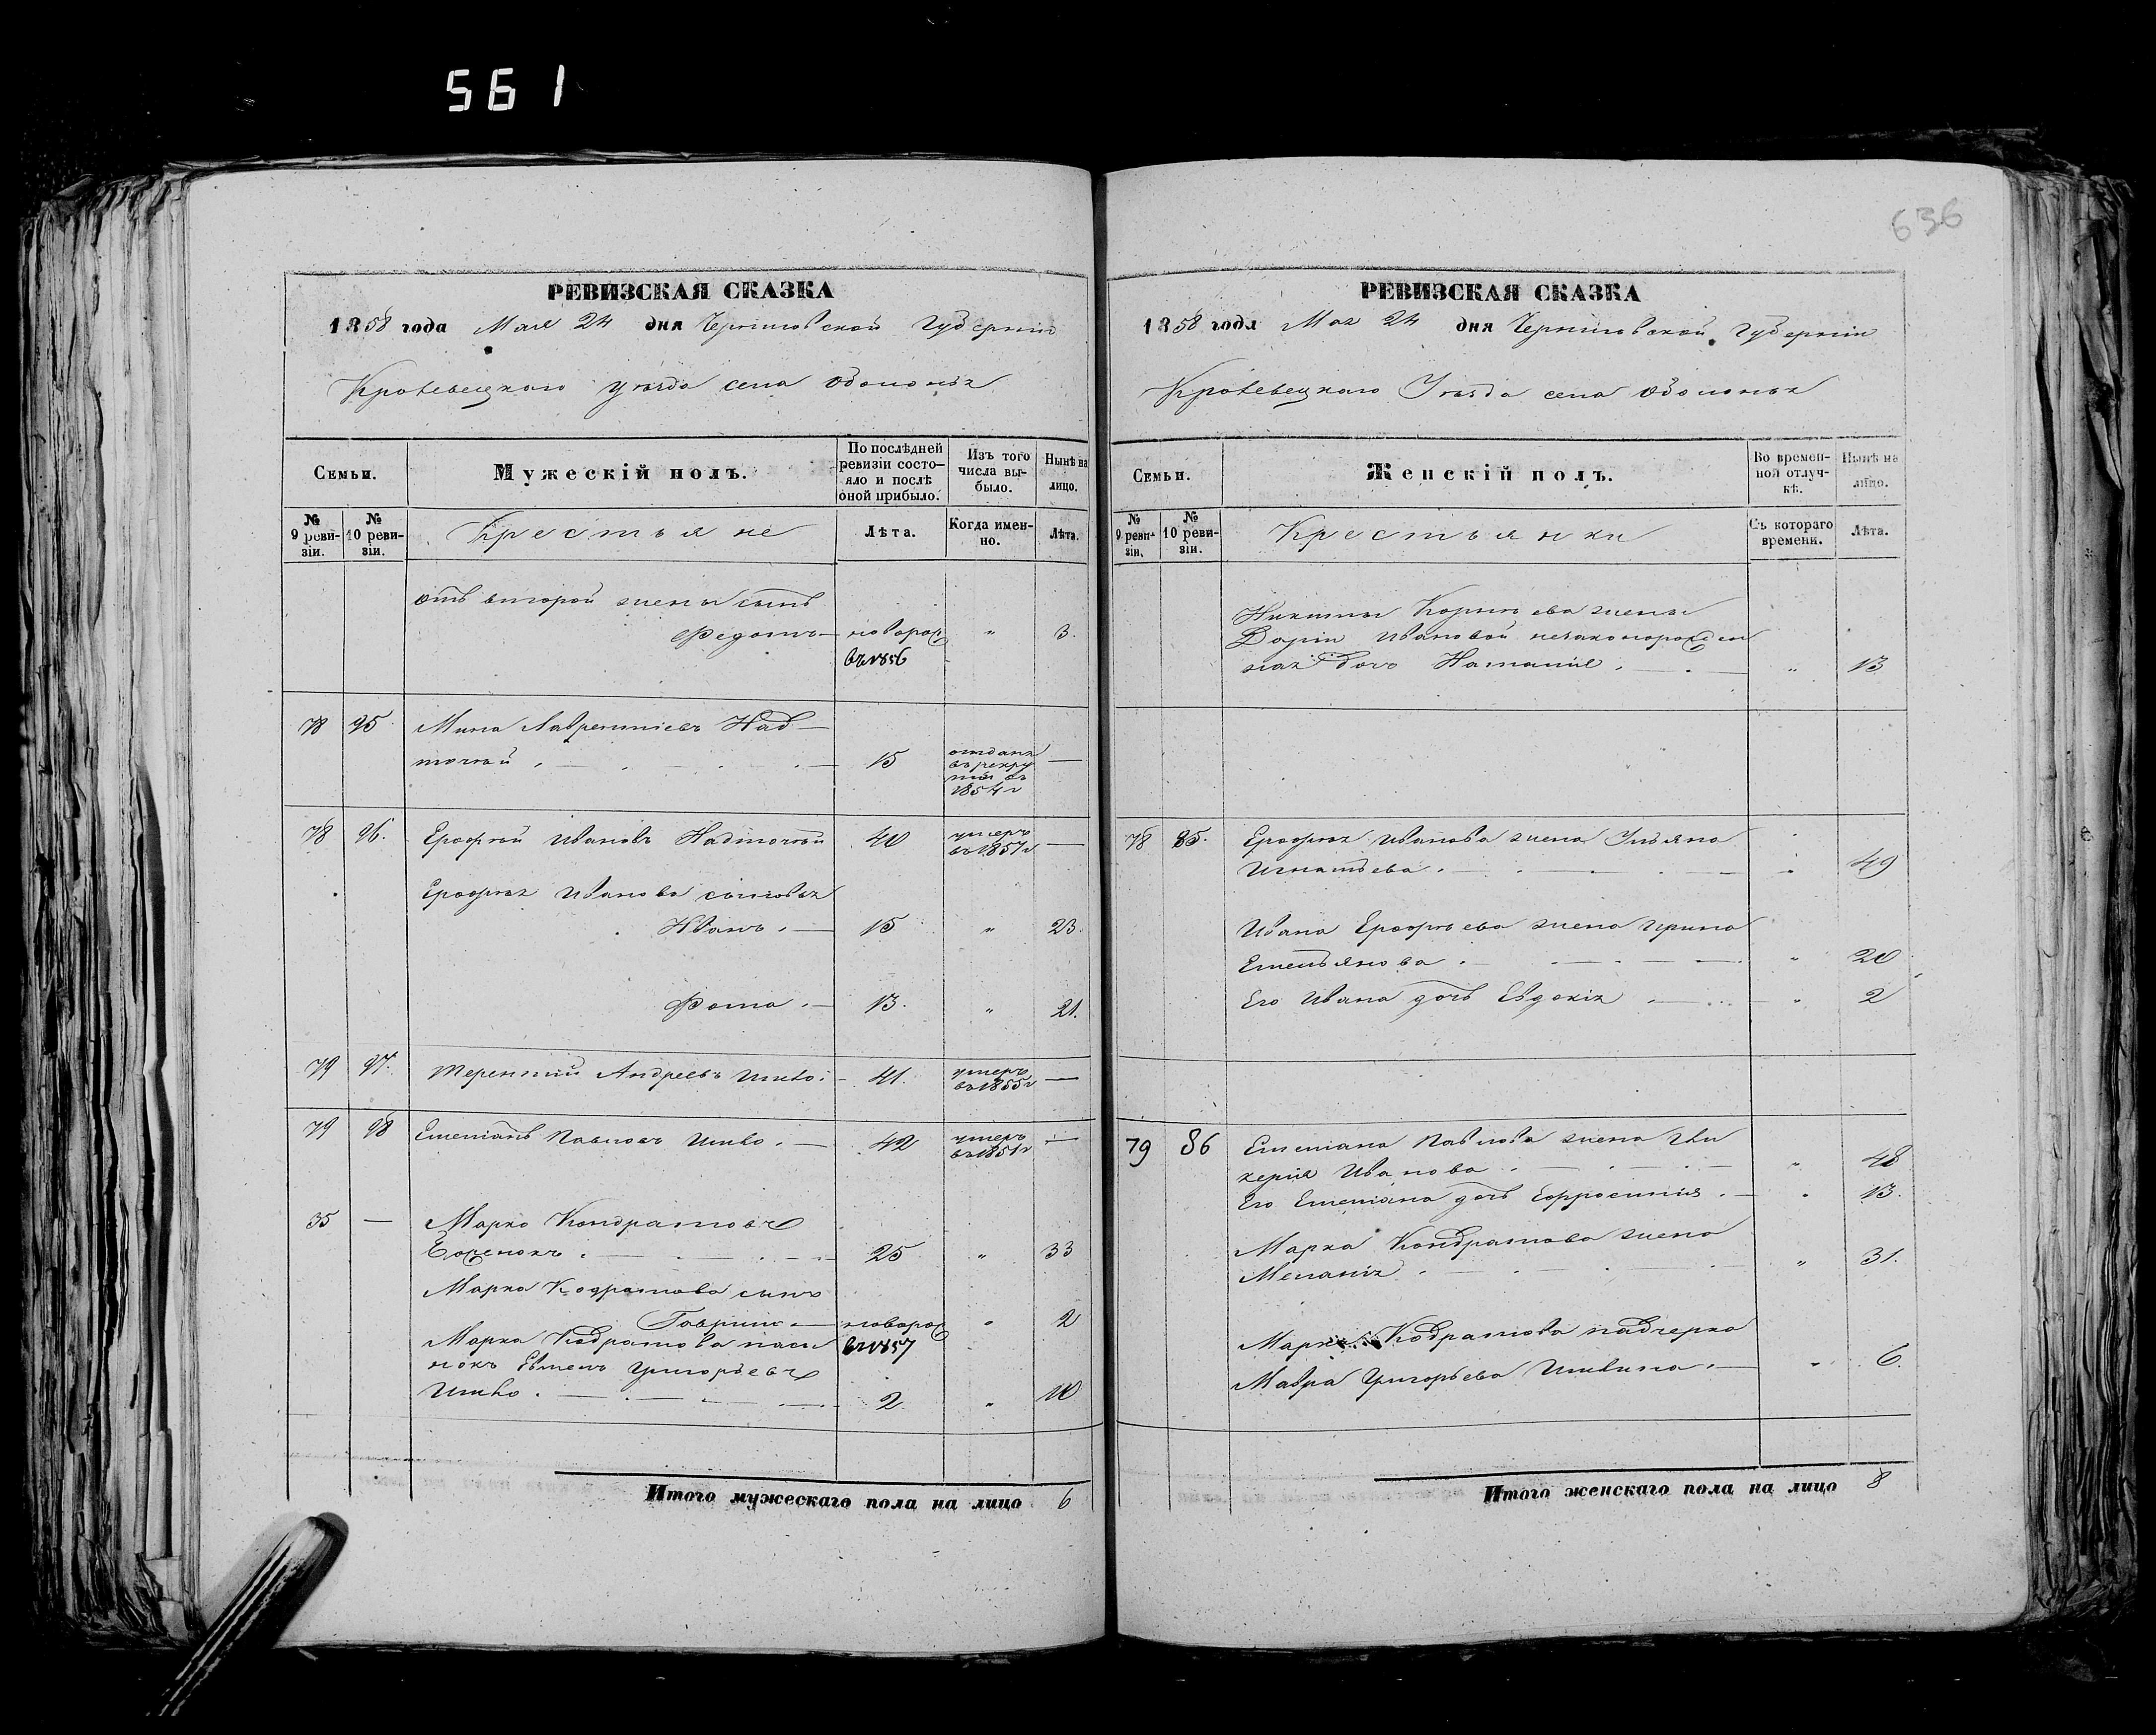 561
636
РЕВИЗСКАЯ СКАЗКА
1858 года Мая 24 дня Черниговской Губерніи
Кролевецкаго уѣзда села Оболонья
Семьи.
Мужескій полъ.
По послѣдней ревизіи состо-
яло и послѣ оной прибыло.
Изъ того числа вы-
было.
Нынѣ на лицо.
№ 9 реви-
зіи.
№ 10 реви-
зіи.
Крестьяне
Лѣта.
Когда имен-
но.
Лѣта.
отъ второй жены сынъ
Федотъ — новорож " 3.
въ 1856
78 95. Мина Лаврентіевъ Над-
точій 15 отданъ въ рекруты въ 1854 г —
78 96. Ерофѣй Ивановъ Надточій 40 умеръ въ 1857 г —
Ерофѣя Иванова сыновья
Иванъ. — 15 " 23.
Фома. — 13. " 21.
79 97. Терентій Андреевъ Ивко. — 41. умеръ въ 1855 г —
79 98 Емеліанъ Павловъ Ивко. — 42 умеръ въ 1851 г —
35 — Марко Кондратовъ
25 " 33
Марка Кодратова сынъ
Гаврило — новорож " 2
Марка Кодратова пасы въ 1857
нокъ Евменъ Григорьевъ
Ивко. 2 " 10
Итого мужескаго пола на лицо 6
РЕВИЗСКАЯ СКАЗКА
1858 года Мая 24 дня Черниговской Губерніи
Кролевецкаго Уѣзда села Оболонья
Семьи.
Женскій полъ.
Во времен-
ной отлуч-
кѣ.
Нынѣ на лицо.
№ 9 реви-
зіи.
№ 10 реви-
зіи.
Крестьянки
Съ котораго времени.
Лѣта.
Никиты жены
Даріи Ивановой незаконорожден
ная дочь Наталія. — " 13
78 85. Ерофѣя Иванова жена Ульяна
Игнатьева. " 49
Ивана Ерофѣева жена Ирина
Емельянова. " 20
Его Ивана дочь Евдокія " 2
79 86 Емеліана Павлова жена Гли
керія Иванова. " 48
Его Емеліана дочь Ефросинія. — " 13.
Марка Кондратова жена
Меланія " 31.
Марка Кодратова падчерка
Мавра Григорьева Ивкина. — " 6.
Итого женскаго пола на лицо 8